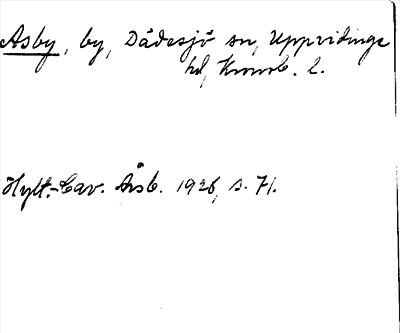 Asby, by, Dädesjö sn, Uppvidinge
hd, Kronob. l.
Hylt.-Cav. Årsb. 1926, s. 71.